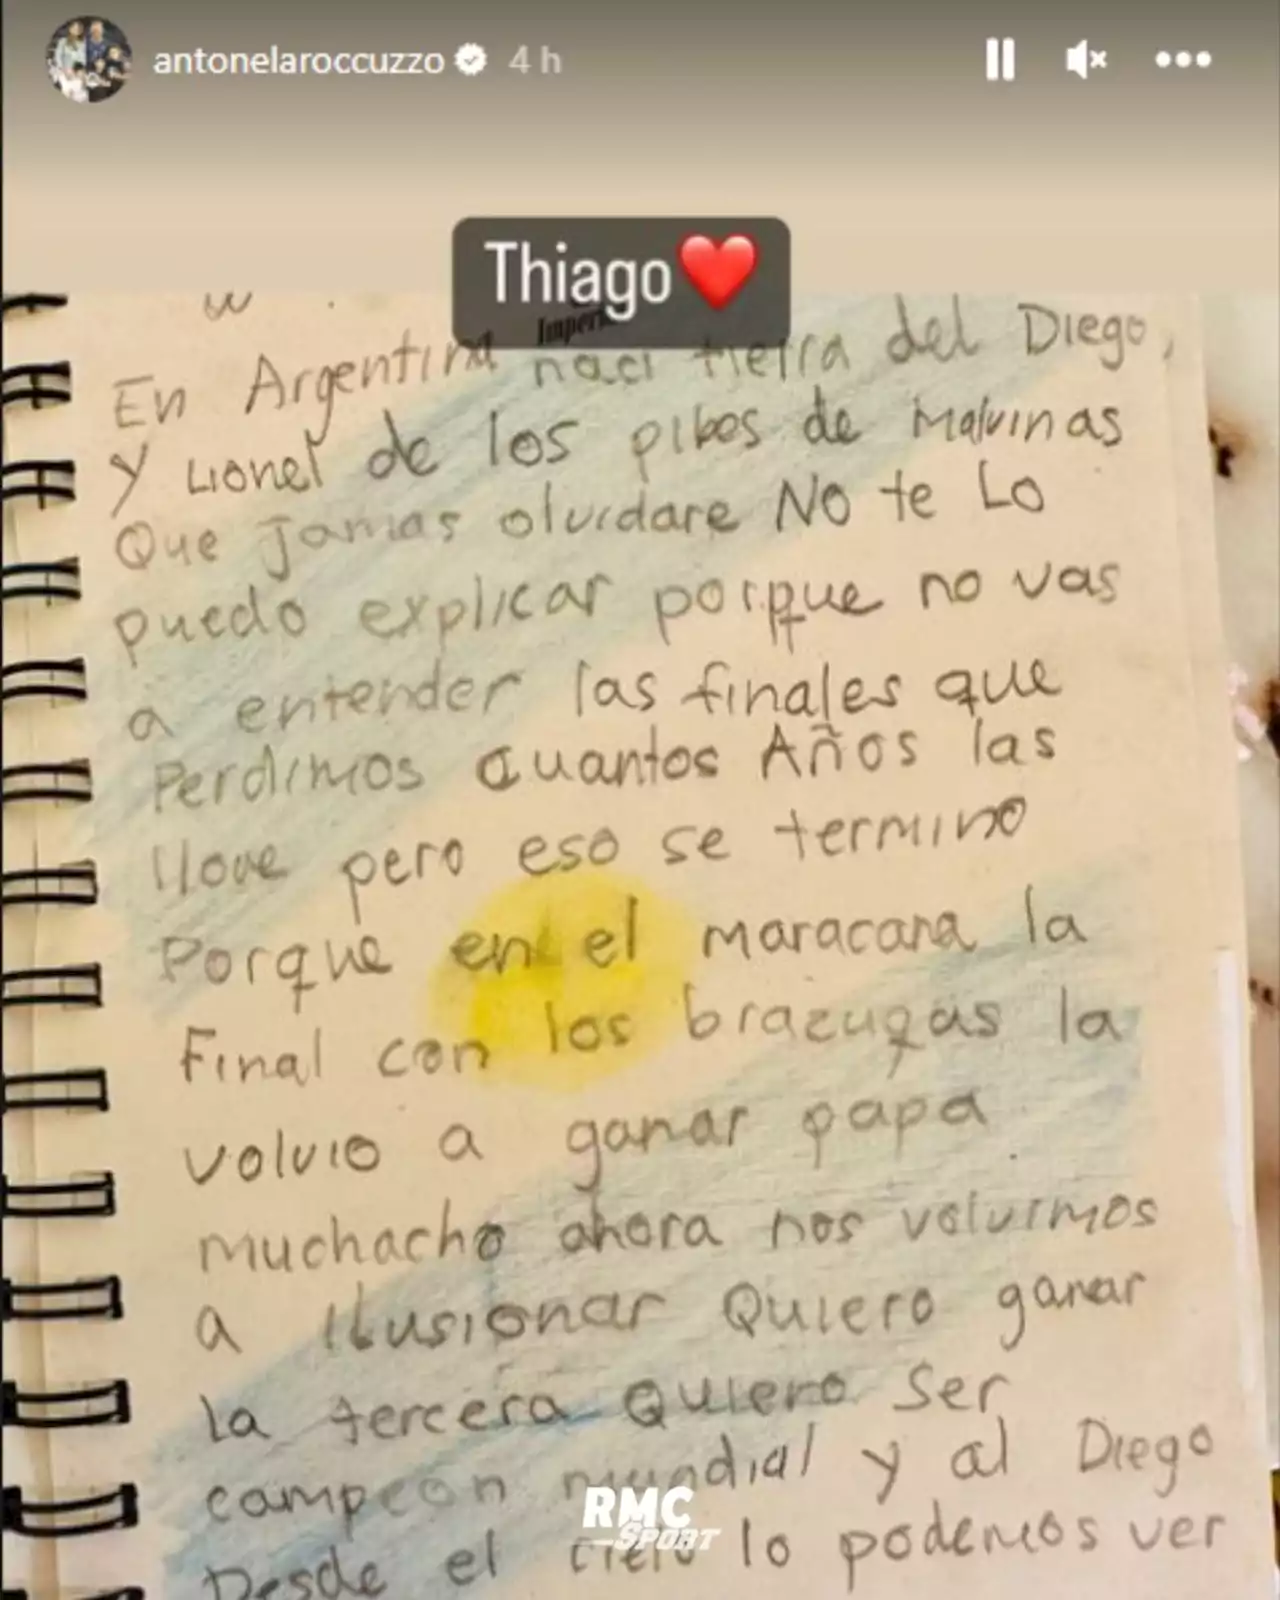 antonelaroccuzzo 4 h
Thiago❤️
En Argentina naci tierra del Diego,
Y Lionel de los pibes de Malvinas
Que jamas olvidare NO te Lo
puedo explicar porque no vas
a entender las finales que
Perdimos cuantos Años las
llore pero eso se termino
Porque en el maracana la
Final con los brazugas la
volvio a ganar papa
muchacho ahora nos volvimos
a ilusionar Quiero ganar
la tercera Quiero Ser
campeon mundial y al Diego
RMC
SPORT
Desde el cielo lo podemos ver